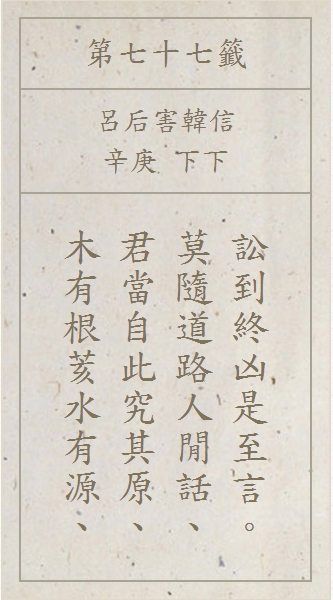 第七十七籤
呂后害韓信
辛庚 下下
木有根荄水有源、
君當自此究其原、
莫隨道路人閒話、
訟到終凶是至言。